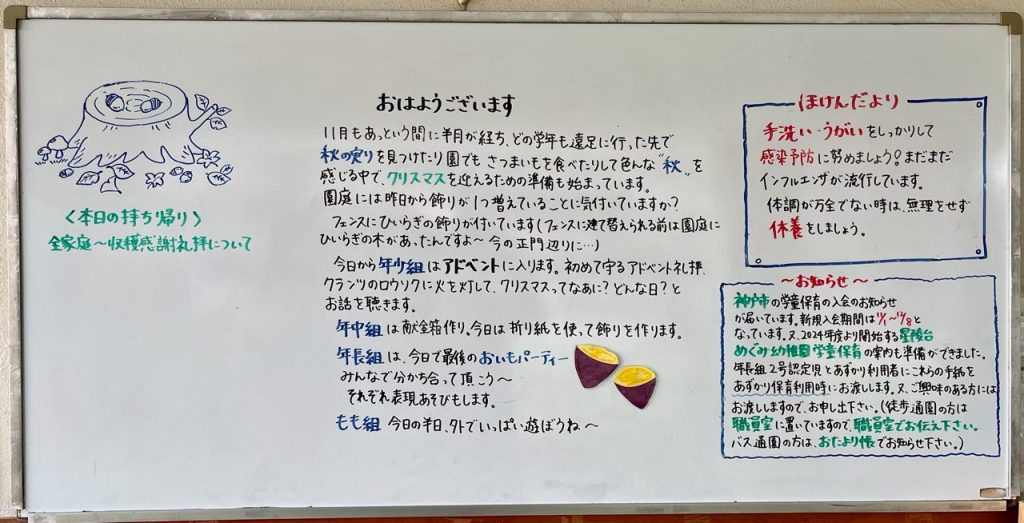 〈本日の持ち帰り〉
全家庭〜収穫感謝礼拝について
おはようございます
11月もあっという間に半月が経ち、どの学年も遠足に行った先で
秋の実りを見つけたり園でも さつまいもを食べたりして色んな〝秋〟を
感じる中で、クリスマスを迎えるための準備も始まっています。
園庭には昨日から飾りが1つ増えていることに気付いていますか?
フェンスにひいらぎの飾りが付いています(フェンスに建て替えられる前は園庭に
ひいらぎの木があったんですよ〜 今の正門辺りに…)
今日から年少組はアドベントに入ります。初めて守るアドベント礼拝、
クランツのロウソクに火を灯して、クリスマスってなあに?どんな日?と
お話を聴きます。
年中組は献金箱作り。今日は折り紙を使って飾りを作ります。
年長組は、今日で最後のおいもパーティー
みんなで分かち合って頂こう〜
それぞれ表現あそびもします。
もも組 今日の半日、外でいっぱい遊ぼうね〜
ほけんだより
手洗い・うがいをしっかりして
感染予防に努めましょう!まだまだ
インフルエンザが流行しています。
体調が万全でない時は、無理をせず
休養をしましょう。
〜お知らせ〜
神戸市の学童保育の入会のお知らせ
が届いています。新規入会期間は12/1〜12/8と
なっています。又、2024年度より開始する星陵台
めぐみ幼稚園学童保育の案内も準備ができました。
年長組2号認定児とあずかり利用者にこれらの手紙を
あずかり保育利用時にお渡しします。又、ご興味のある方には
お渡ししますので、お申し出下さい。(徒歩通園の方は
職員室に置いていますので、職員室でお伝え下さい。
バス通園の方は、おたより帳でお知らせ下さい。)